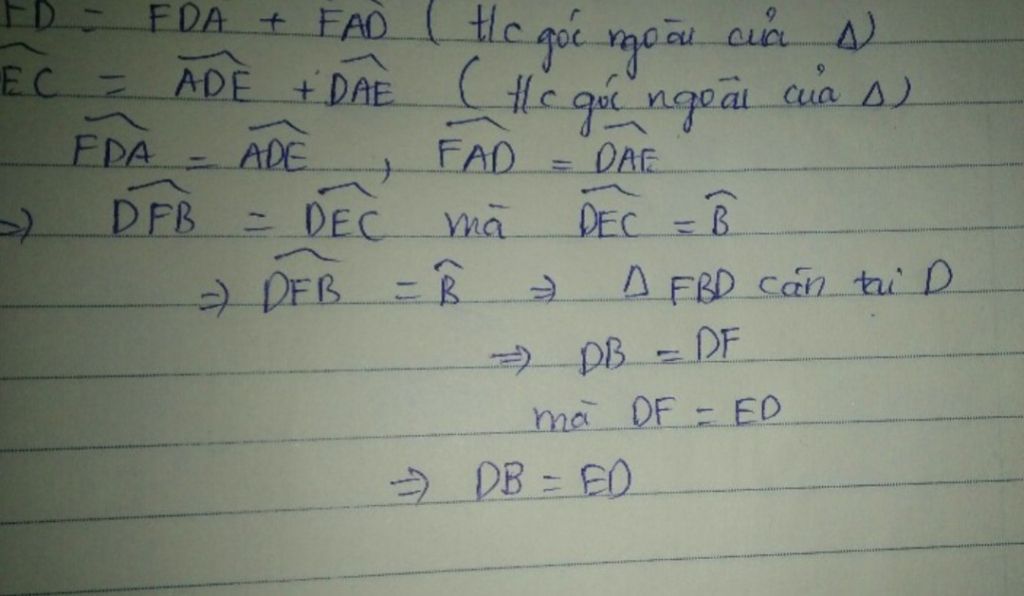 FD = FDA + FAD ( t/c góc ngoài của Δ)
EC = ADE + DAE ( t/c góc ngoài của Δ)
FDA = ADE , FAD = DAE
=> DFB = DEC mà DEC = B
=> DFB = B => Δ FBD cân tại D
=> DB = DF
mà DF = ED
=> DB = ED